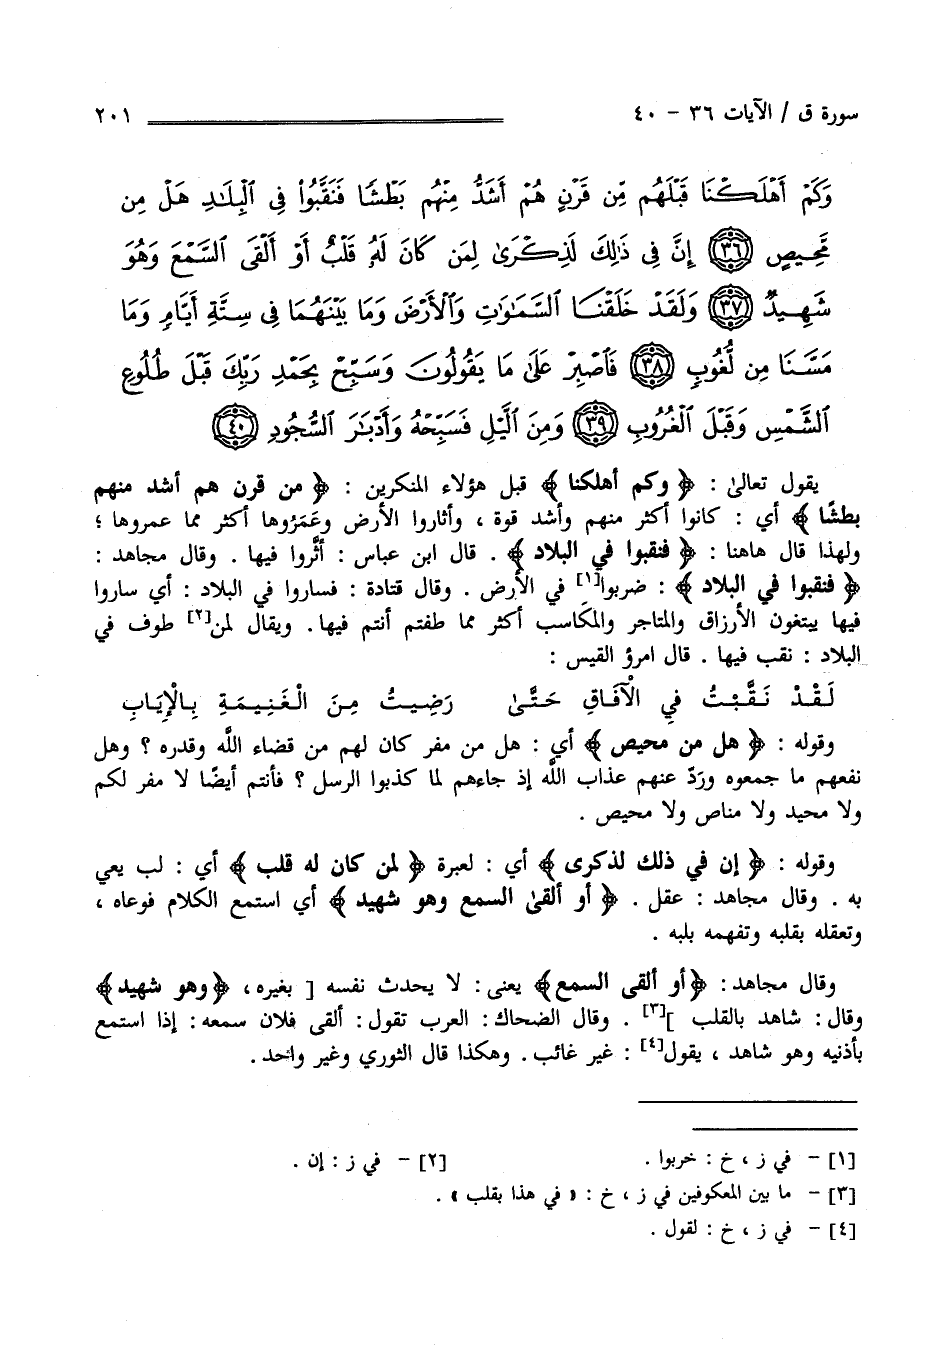 سورة ق / الآيات ٣٦ - ٤٠ ٢٠١
وَكَمْ أَهْلَكْنَا قَبْلَهُم مِّن قَرْنٍ هُمْ أَشَدُّ مِنْهُم بَطْشًا فَنَقَّبُوا۟ فِى ٱلْبِلَـٰدِ هَلْ مِن
مَّحِيصٍ ﴿٣٦﴾ إِنَّ فِى ذَٰلِكَ لَذِكْرَىٰ لِمَن كَانَ لَهُۥ قَلْبٌ أَوْ أَلْقَى ٱلسَّمْعَ وَهُوَ
شَهِيدٌ ﴿٣٧﴾ وَلَقَدْ خَلَقْنَا ٱلسَّمَـٰوَٰتِ وَٱلْأَرْضَ وَمَا بَيْنَهُمَا فِى سِتَّةِ أَيَّامٍ وَمَا
مَسَّنَا مِن لُّغُوبٍ ﴿٣٨﴾ فَٱصْبِرْ عَلَىٰ مَا يَقُولُونَ وَسَبِّحْ بِحَمْدِ رَبِّكَ قَبْلَ طُلُوعِ
ٱلشَّمْسِ وَقَبْلَ ٱلْغُرُوبِ ﴿٣٩﴾ وَمِنَ ٱلَّيْلِ فَسَبِّحْهُ وَأَدْبَـٰرَ ٱلسُّجُودِ ﴿٤٠﴾
يقول تعالىٰ : ﴿ وكم أهلكنا ﴾ قبل هؤلاء المنكرين : ﴿ من قرن هم أشد منهم
بطشًا ﴾ أي : كانوا أكثر منهم وأشد قوة ، وأثاروا الأرض وعَمَرُوها أكثر مما عمروها ؛
ولهذا قال هاهنا : ﴿ فنقبوا في البلاد ﴾ . قال ابن عباس : أثَّروا فيها . وقال مجاهد :
﴿ فنقبوا في البلاد ﴾ : ضربوا[١] في الأرض . وقال قتادة : فساروا في البلاد : أي ساروا
فيها يبتغون الأرزاق والمتاجر والمكَاسب أكثر مما طفتم أنتم فيها. ويقال لمن[٢] طوف في
البلاد : نقب فيها . قال امرؤ القيس :
لَقَدْ نَقَّبْتُ فِي الْآفَاقِ حَتَّىٰ رَضِيتُ مِنَ الْغَنِيمَةِ بِالْإِيَابِ
وقوله : ﴿ هل من محيص ﴾ أي : هل من مفر كان لهم من قضاء اللَّه وقدره ؟ وهل
نفعهم ما جمعوه ورَدّ عنهم عذاب اللَّه إذ جاءهم لما كذبوا الرسل ؟ فأنتم أيضًا لا مفر لكم
ولا محيد ولا مناص ولا محيص .
وقوله : ﴿ إن في ذلك لذكرى ﴾ أي : لعبرة ﴿ لمن كان له قلب ﴾ أي : لب يعي
به . وقال مجاهد : عقل . ﴿ أو ألقىٰ السمع وهو شهيد ﴾ أي استمع الكلام فوعاه ،
وتعقله بقلبه وتفهمه بلبه .
وقال مجاهد: ﴿أو ألقى السمع﴾ يعنى: لا يحدث نفسه [ بغيره، ﴿وهو شهيد﴾
وقال: شاهد بالقلب ][٣] . وقال الضحاك: العرب تقول: ألقى فلان سمعه: إذا استمع
بأذنيه وهو شاهد ، يقول[٤] : غير غائب. وهكذا قال الثوري وغير واحد.
[١] - في ز ، خ : خربوا . [٢] - في ز : إن .
[٣] - ما بين المعكوفين في ز ، خ : « في هذا بقلب » .
[٤] - في ز ، خ : لقول .